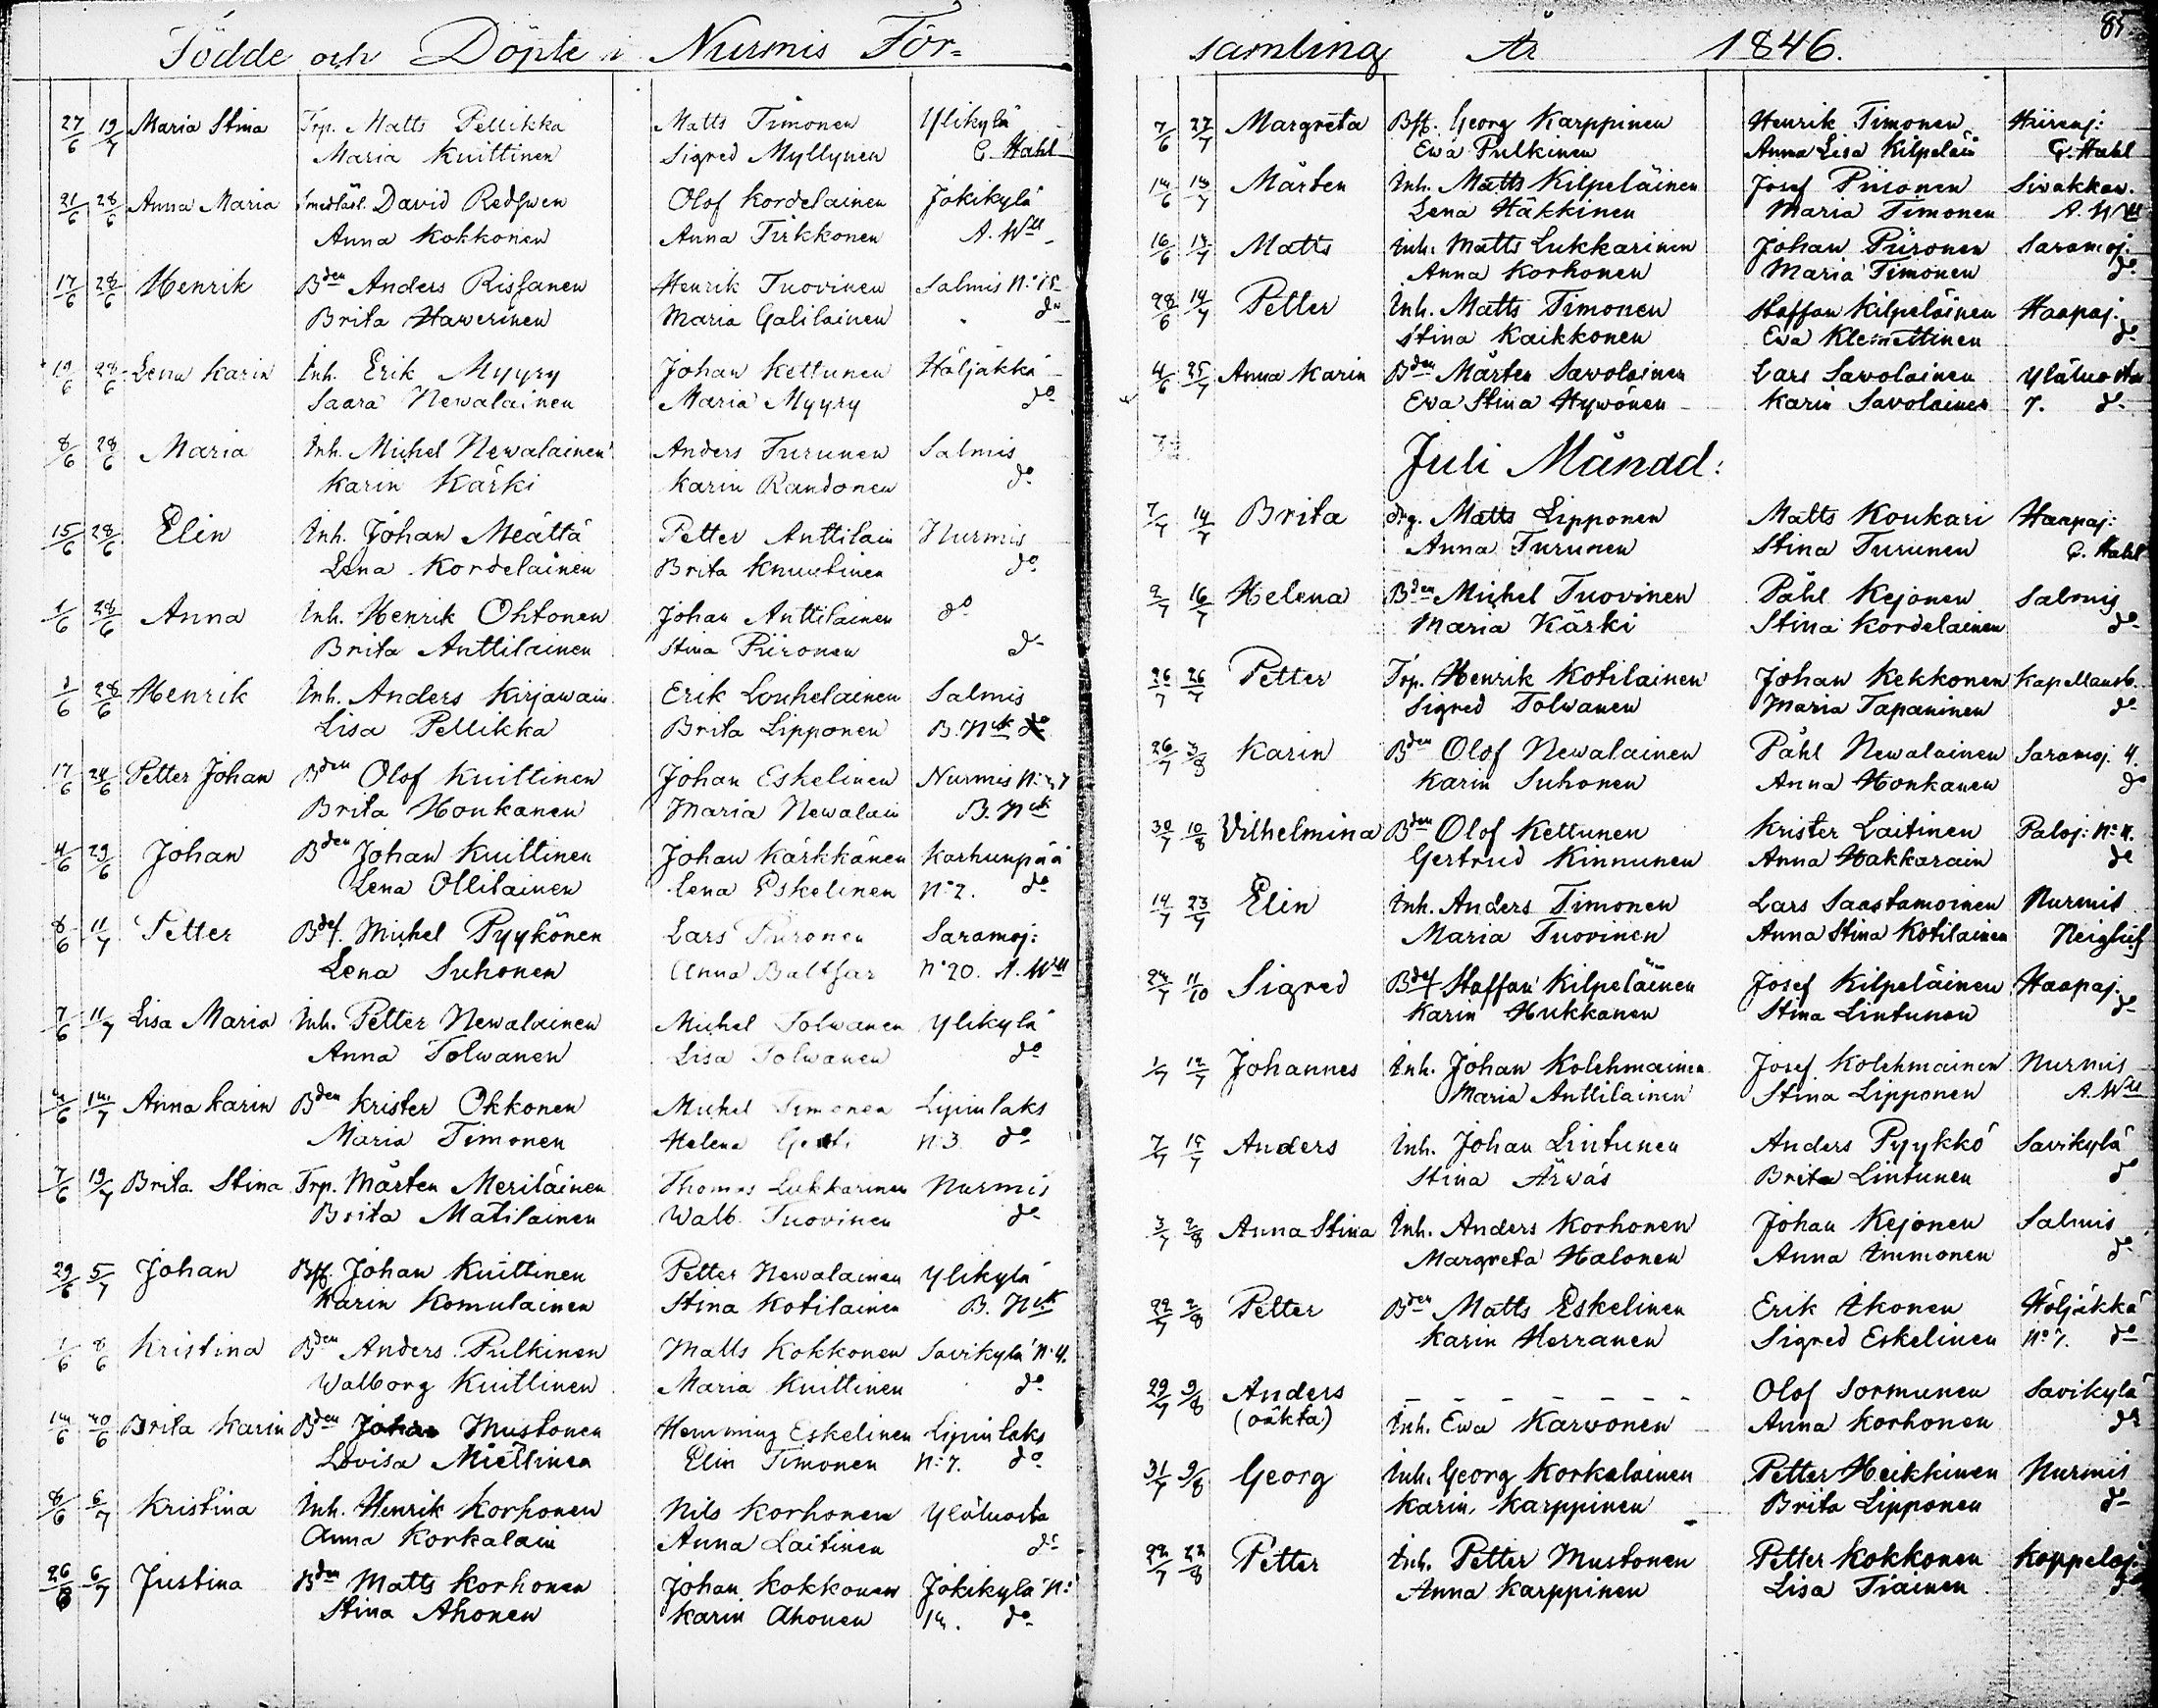 Födde och Döpte i Nurmis För-
27/6 19/7 Maria Stina Trp. Matts Pellikka Matts Timonen Ylikylä
Maria Kuittinen Sigred Myllynen G. Hahl
21/6 28/6 Anna Maria David Redswen Olof Kordelainen Jokikylä
Anna Kokkonen Anna Tirkkonen A. Wll
17/6 28/6 Henrik Bden Anders Rissanen Henrik Tuovinen Salmis No 15
Brita Hawerinen Maria Galilainen do
19/6 28/6 Lena Karin Inh. Erik Myyry Johan Kettunen Höljäkkä
Saara Newalainen Maria Myyry do
8/6 28/6 Maria Inh. Michel Newalainen Anders Turunen Salmis
Karin Kärki Karin Randonen do
15/6 28/6 Elin Inh. Johan Meättä Petter Anttilain Nurmis
Lena Kordelainen Brita Knuutinen do
1/6 28/6 Anna Inh. Henrik Ohtonen Johan Anttilainen do
Brita Anttilainen Stina Piironen do
1/6 28/6 Henrik Inh. Anders Kirjawain Erik Louhelainen Salmis
Lisa Pellikka Brita Lipponen B. Nck do
17/6 24/6 Petter Johan Bden Olof Kuittinen Johan Eskelinen Nurmis No 27
Brita Honkanen Maria Newalain B. Nck
4/6 29/6 Johan Bden Johan Kuittinen Johan Kärkkänen Karhunpää
Lena Ollilainen Lena Eskelinen No 2. do
8/6 11/7 Petter Bdes. Michel Pyykönen Lars Piironen Saramoj:
Lena Suhonen Anna Baltsar No 20. A. Wll
7/6 11/7 Lisa Maria Inh. Petter Newalainen Michel Tolwanen Ylikylä
Anna Tolwanen Lisa Tolwanen do
4/6 14/7 Anna Karin Bden Krister Okkonen Michel Simonen Lipinlaks
Maria Timonen Helena No 3. do
7/6 19/7 Brita Stina Trp. Mårten Meriläinen Thomas Lukkarinen Nurmis
Brita Matilainen Walb. Tuovinen do
29/6 5/7 Johan Bss. Johan Kuittinen Petter Newalainen Ylikylä
Karin Komulainen Stina Kotilainen B. Nck
1/6 8/6 Kristina Bden Anders Pulkinen Matts Kokkonen Savikylä No 4.
Walborg Kuittinen Maria Kuittinen do
14/6 20/6 Brita Karin Bden Johan Mustonen Hemming Eskelinen Lipinlaks
Lovisa Miettinen Elin Timonen No 7. do
8/6 6/7 Kristina Inh. Henrik Korhonen Nils Korhonen Ylöluosta
Anna Korkalain Anna Laitinen do
26/6 6/7 Justina Bden Matts Korhonen Johan Kokkonen Jokikylä No
Stina Ahonen Karin Ahonen 14. do
85
samling År 1846.
7/6 27/7 Margreta Bss. Georg Karppinen Henrik Timonen Hiirenj:
Ewa Pulkinen Anna Lisa Kilpeläin G. Hahl
14/6 14/7 Mårten Inh. Matts Kilpeläinen Josef Piironen Sivakkav.
Lena Häkkinen Maria Timonen A. Wll
16/6 14/7 Matts Inh. Matts Lukkarinen Johan Piironen Saramoj:
Anna Korhonen Maria Timonen do
28/6 14/7 Petter Inh. Matts Timonen Staffan Kilpeläinen Haapaj.
Stina Kaikkonen Eva Klemettinen do
4/6 25/7 Anna Karin Bden Mårten Savolainen Lars Savolainen Yläluosta
Ewa Stina Hywönen Karin Savolainen 7. do
Juli Månad:
7/7 14/7 Brita drg. Matts Lipponen Matts Koukari Haapaj:
Anna Turunen Stina Turunen G. Hahl
2/7 16/7 Helena Bden Michel Tuovinen Påhl Kejonen Salmis
Maria Kärki Stina Kordelainen do
26/7 26/7 Petter Trp. Henrik Kotilainen Johan Kekkonen Kapellansb.
Sigred Tolwanen Maria Tapaninen do
26/7 3/8 Karin Bden Olof Newalainen Påhl Newalainen Saramoj. 4.
Karin Suhonen Anna Honkanen do
30/7 10/8 Vilhelmina Bden Olof Kettunen Krister Laitinen Paloj: No 4.
Gertrud Kinnunen Anna Hakkarain do
14/7 23/7 Elin Inh. Anders Timonen Lars Saastamoinen Nurmis
Maria Tuovinen Anna Stina Kotilainen Neiglick
24/7 11/10 Sigred Bdes Staffan Kilpeläinen Josef Kilpeläinen Haapaj.
Karin Hukkanen Stina Lintunen do
1/7 12/7 Johannes Inh. Johan Kolehmainen Josef Kolehmainen Nurmis
Maria Anttilainen Stina Lipponen A. Wll
7/7 15/7 Anders Inh. Johan Lintunen Anders Pyykkö Savikylä
Stina Ärwäs Brita Lintunen do
3/7 2/8 Anna Stina Inh. Anders Korhonen Johan Kejonen Salmis
Margreta Halonen Anna Immonen do
22/7 2/8 Petter Bden Matts Eskelinen Erik Ikonen Höljäkkä
Karin Herranen Sigred Eskelinen No 7. do
29/7 9/8 Anders - - - - - - - Olof Sormunen Savikylä
(oäkta) Inh. Ewa Karvonen Anna Korhonen do
31/7 9/8 Georg Inh. Georg Korkalainen Petter Heikkinen Nurmis
Karin Karppinen Brita Lipponen do
22/7 22/8 Petter Inh. Petter Mustonen Petter Kokkonen Koppeloj:
Anna Karppinen Lisa Tiainen do